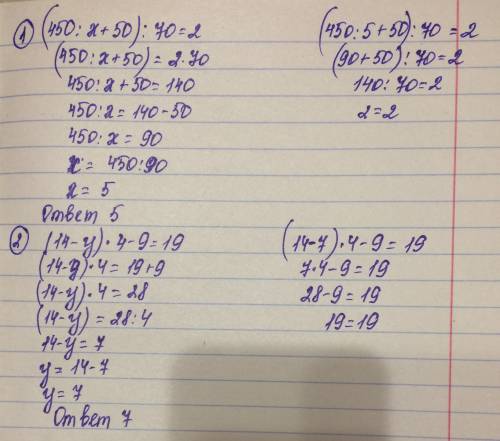 1 (450:x+50):70=2
(450:x+50)=2·70
450:x+50=140
450:x=140-50
450:x=90
x=450:90
x=5
Ответ 5
(450:5+50):70=2
(90+50):70=2
140:70=2
2=2
2 (14-y)·4-9=19
(14-y)·4=19+9
(14-y)·4=28
(14-y)=28:4
14-y=7
y=14-7
y=7
Ответ 7
(14-7)·4-9=19
7·4-9=19
28-9=19
19=19